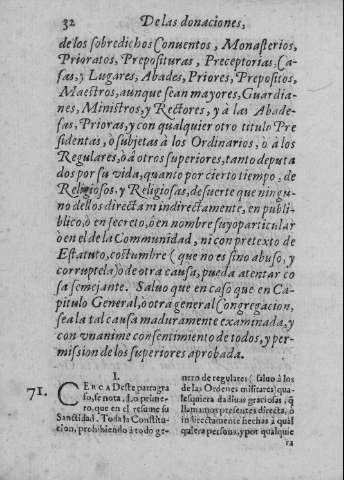 32 De las donaciones,
de los sobredichos Conuentos, Monasterios,
Prioratos, Preposituras, Preceptorias, Ca-
sas, y Lugares, Abades, Priores, Prepositos,
Maestros, aunque sean mayores, Guardia-
nes, Ministros, y Rectores, y à las Abade-
sas, Prioras, y con qualquier otro titulo Pre
sidentas, o subjetas à los Ordinarios, o à los
Regulares, ò à otros superiores, tanto deputa
dos por su vida, quanto por cierto tiempo, de
Religiosos, y Religiosas, de suerte que ningu-
no dellos directa ni indirectamente, en publi-
blico, ò en secreto, ò en nombre suyo particular
ò en el de la Comunidad, ni con pretexto de
Estatuto, costumbre (que no es sino abuso, y
corruptela) o de otra causa, pueda atentar co
sa semejante. Saluo que en caso que en Ca-
pitulo General, ò otra general Congregacion,
sea la tal causa maduramente examinada, y
con vnanime consentimiento de todos, y per-
mission de los superiores aprobada.
I.
71. CERCA Deste parragra
fo, se nota. Lo prime-
ro, que en el resume su
Sanctidad. Toda la Constitu-
cion, prohibiendo à todo ge-
nero de regulares (saluo à los
de las Ordenes militares) qua-
lesquiera dadiuas graciosas, q̃
llamamos presentes directa, ò
indirectamente hechas à qual
quiera persona, y por qualquie
ra